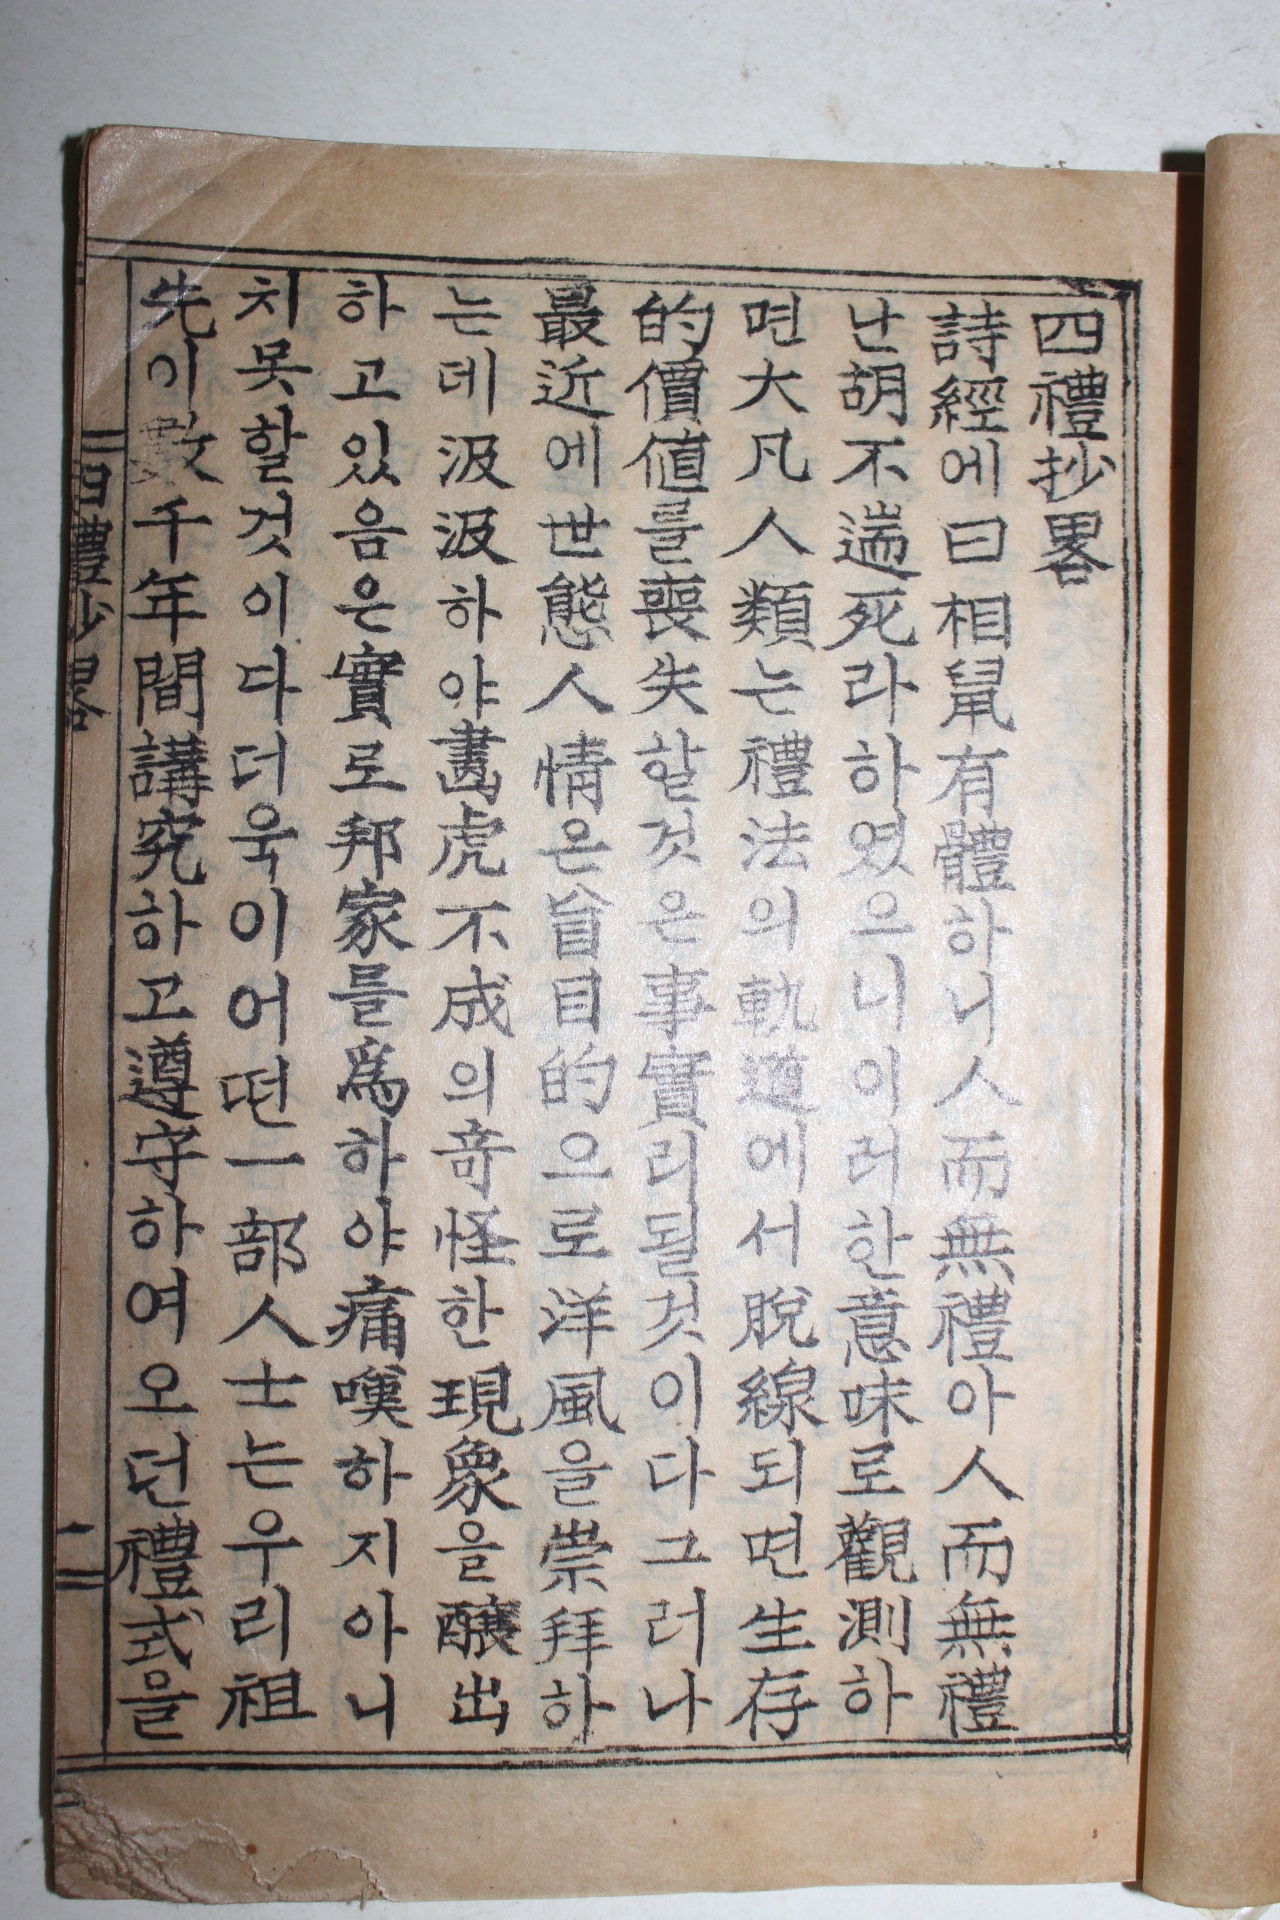 四禮抄畧
詩經에曰相鼠有體하니人而無禮아人而無禮
난胡不遄死라하였으니이러한意味로觀測하
면大凡人類는禮法의軌道에서脫線되면生存
的價値를喪失할것은事實리될것이다그러나
最近에世態人情은盲目的으로洋風을崇拜하
는데汲汲하야畵虎不成의奇怪한現象을釀出
하고있음은實로邦家를爲하야痛嘆하지아니
치못할것이다더욱이어떤一部人士는우리祖
先이數千年間講究하고遵守하여오던禮式을
四禮抄畧
一